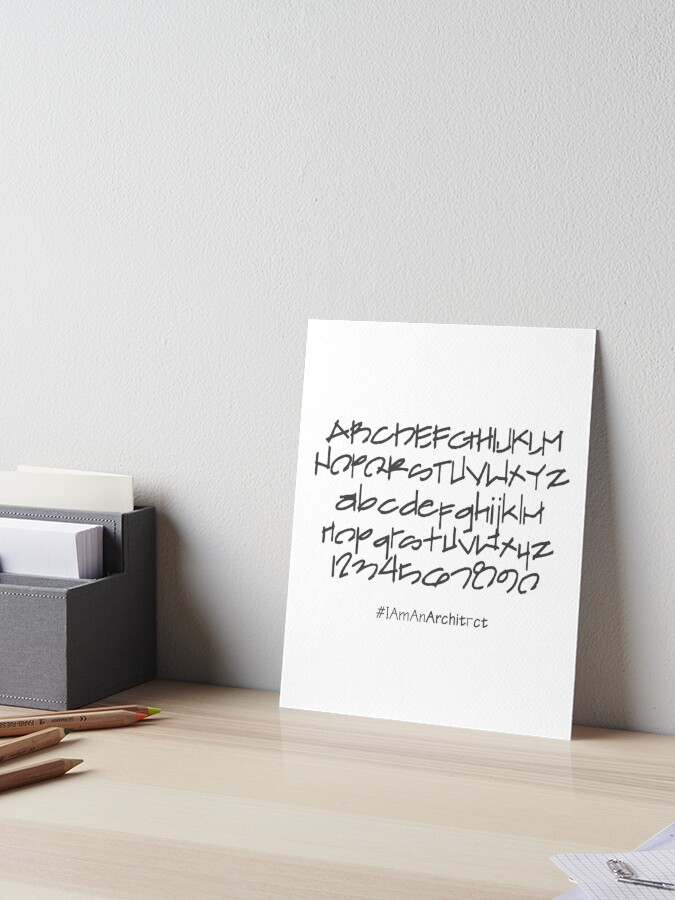 ABCDEFGHIJKLM
NOPQRSTUVWXYZ
abcdefghijklm
nopqrstuvwxyz
1234567890
#IAmAnArchitrct